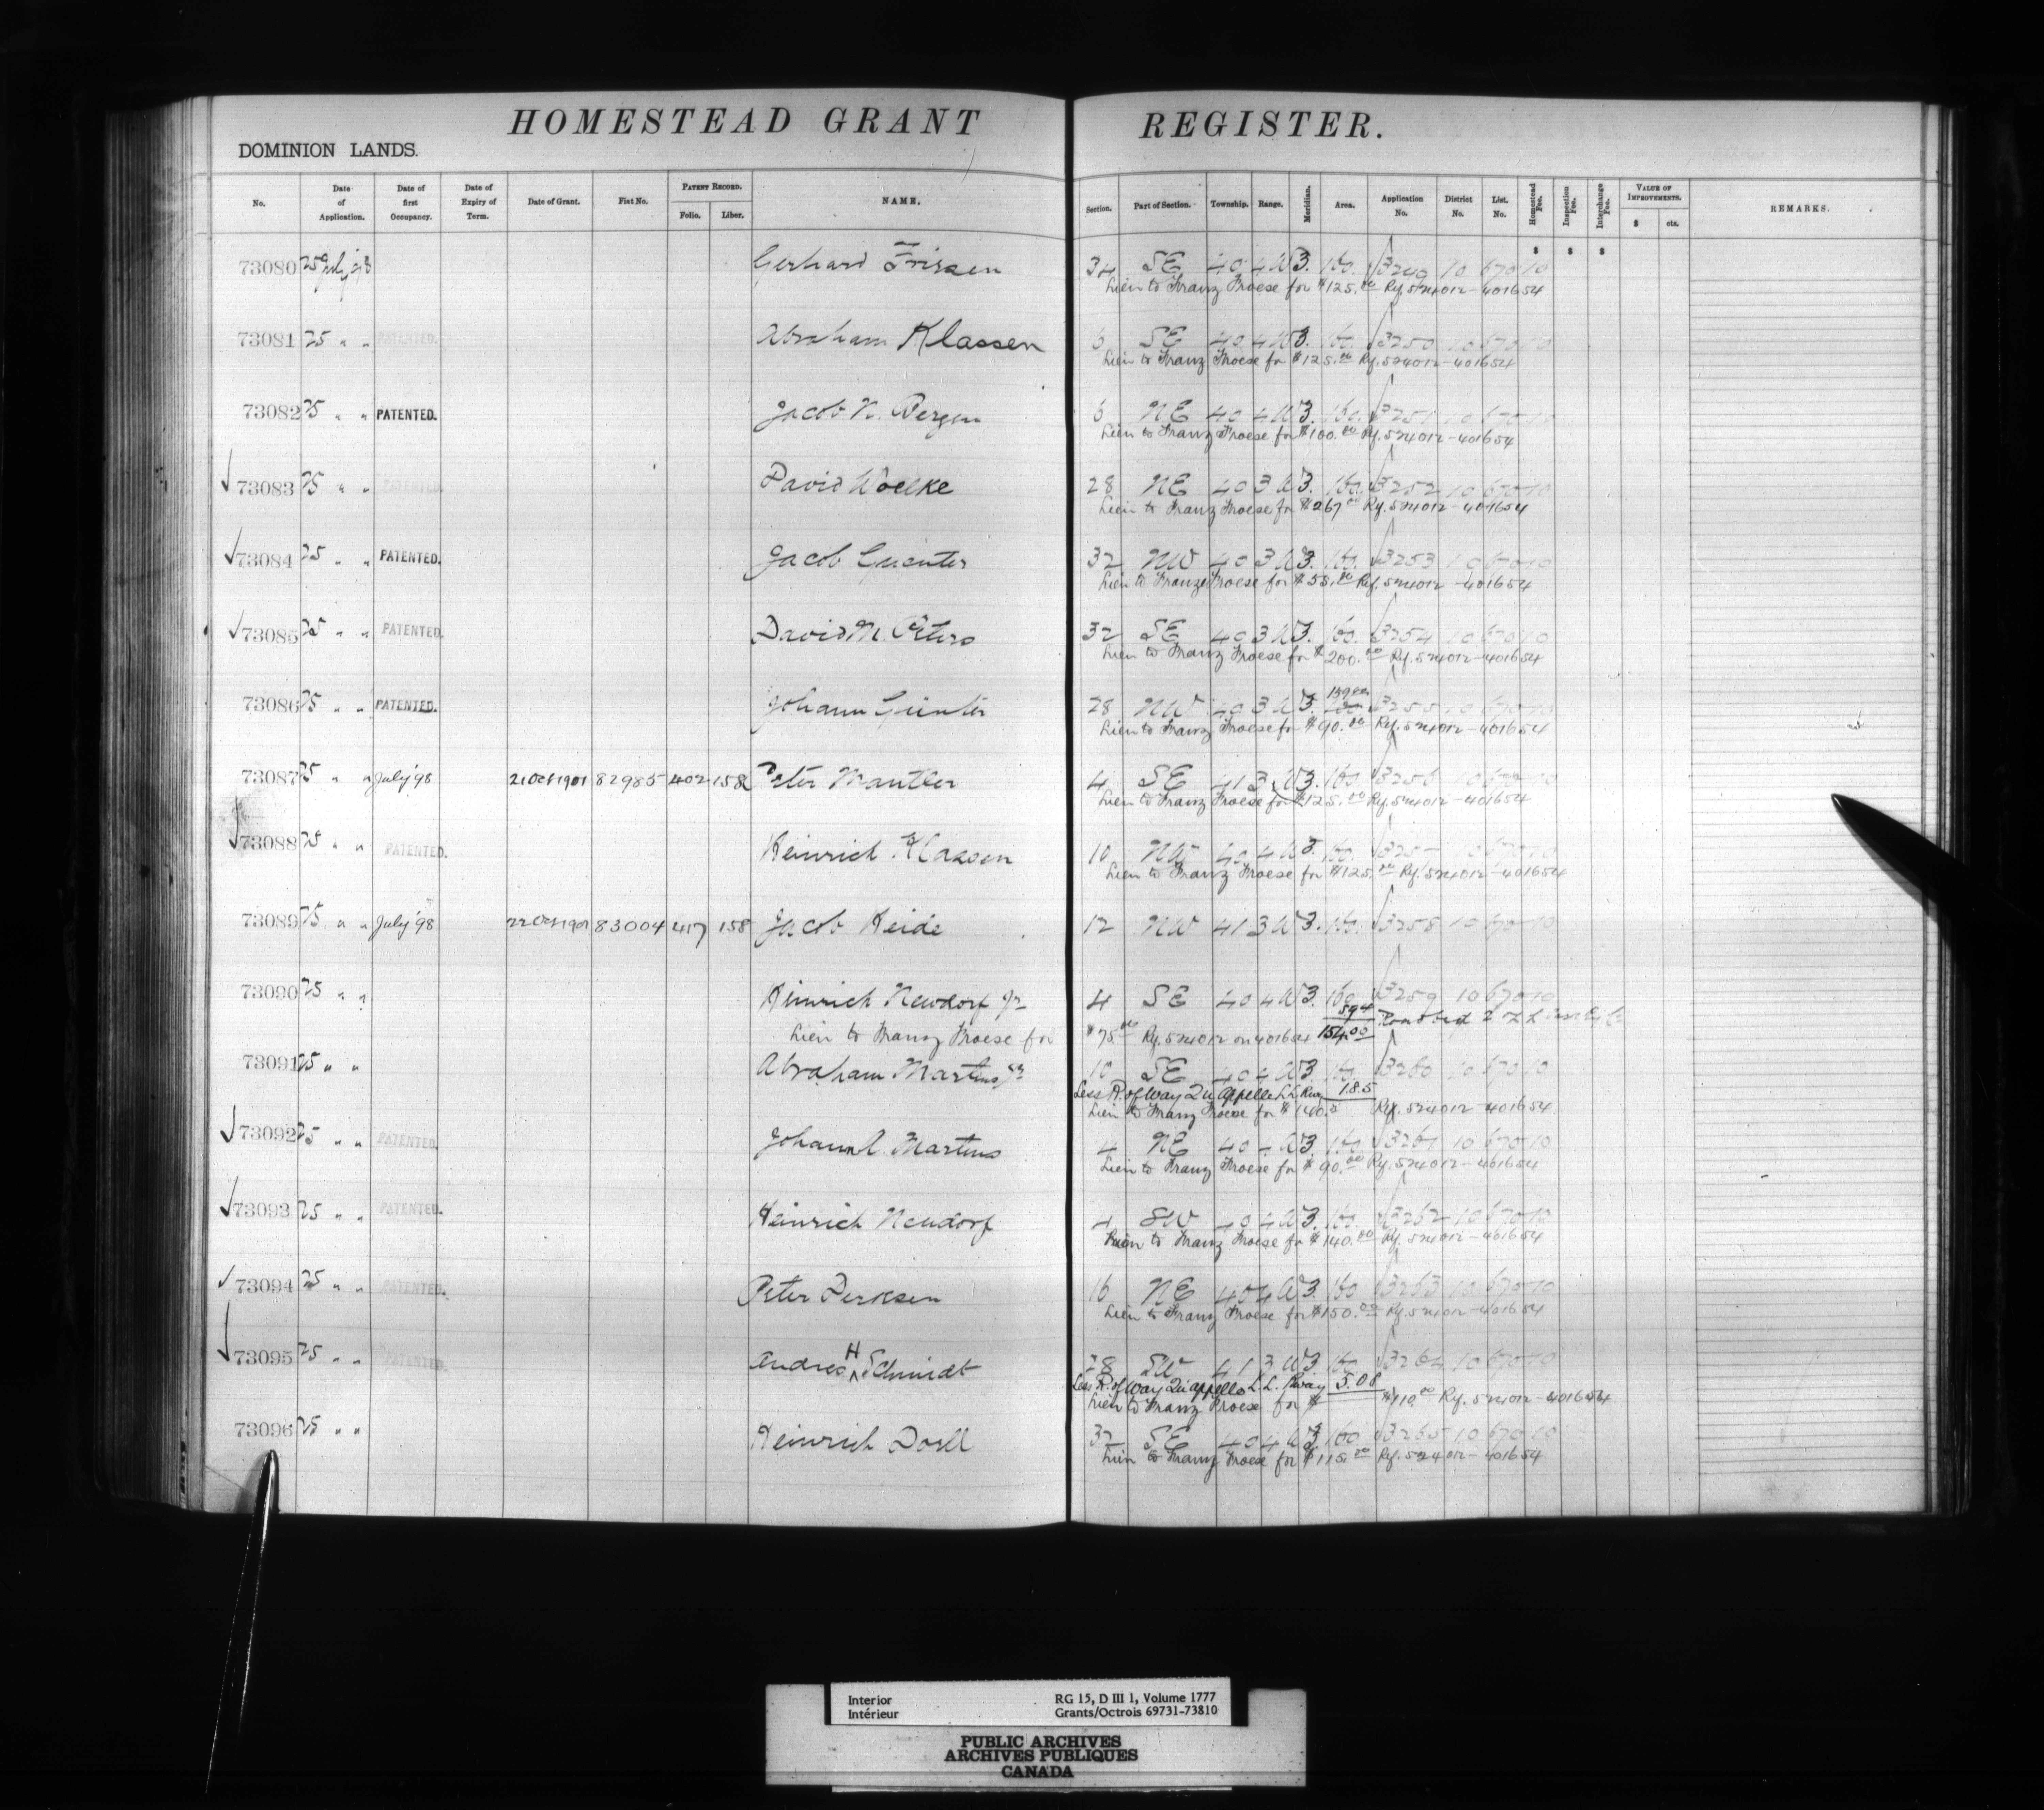 HOMESTEAD GRANT REGISTER.
DOMINION LANDS.
No. Date of Application. Date of first Occupancy. Date of Expiry of Term. Date of Grant. Fiat No. PATENT RECORD. Folio. Liber. NAME. Section. Part of Section. Township. Range. Meridian. Area. Application No. District No. List. No. Homestead Fee. Inspection Fee. Interchange Fee. VALUE OF IMPROVEMENTS. $ cts. REMARKS.
$ $ $
73080 25 July 98 Gerhard Friesen 34 SE 40 4 W 3. 160. 3249 10 670 10
Lien to Franz Froese for $125.00 Rf. 524012-401654
73081 25 " " PATENTED. Abraham Klassen 6 SE 40 4 W 3. 160. 3250 10 670 10
Lien to Franz Froese for $125.00 Rf. 524012-401654
73082 25 " " PATENTED. Jacob N. Bergen 6 NE 40 4 W 3. 160. 3251 10 670 10
Lien to Franz Froese for $100.00 Rf. 524012-401654
73083 25 " " PATENTED. David Woelke 28 NE 40 3 W 3. 160. 3252 10 670 10
Lien to Franz Froese for $267.00 Rf. 524012-401654
73084 25 " " PATENTED. Jacob Guenter 32 NW 40 3 W 3. 160. 3253 10 670 10
Lien to Franz Froese for $55.00 Rf. 524012-401654
73085 25 " " PATENTED. David M. Peters 32 SE 40 3 W 3. 160. 3254 10 670 10
Lien to Franz Froese for $200.00 Rf. 524012-401654
73086 25 " " PATENTED. Johann Guenter 28 NW 40 3 W 3. 160 3255 10 670 10
Lien to Franz Froese for $90.00 Rf. 524012-401654
73087 25 " " July '98 21 Oct 1901 82985 402 158 Peter Mantler 4 SE 41 3 W 3. 160. 3256 10 670 10
Lien to Franz Froese for $125.00 Rf. 524012-401654
73088 25 " " PATENTED. Heinrich Klassen 10 NW 40 4 W 3. 160. 3257 10 670 10
Lien to Franz Froese for $125.00 Rf. 524012-401654
73089 25 " " July '98 22 Oct 1901 83004 417 158 Jacob Heide 12 NW 41 3 W 3. 160. 3258 10 670 10
73090 25 " " Heinrich Neudorf Jr 4 SE 40 4 W 3. 160 3259 10 670 10
5.94
Lien to Franz Froese for $75.00 Rf. 524012 on 401654 154.00
73091 25 " " Abraham Martens Sr 10 SE 40 4 W 3. 160. 3260 10 670 10
Less R. of Way Qu'Appelle L.L. Rwy 1.85
Lien to Franz Froese for $140. Rf. 524012-401654
73092 25 " " PATENTED. Johann A. Martens 4 NE 40 4 W 3. 160 3261 10 670 10
Lien to Franz Froese for $90.00 Rf. 524012-401654
73093 25 " " PATENTED. Heinrich Neudorf 4 SW 40 4 W 3. 160. 3262 10 670 10
Lien to Franz Froese for $140.00 Rf. 524012-401654
73094 25 " " PATENTED. Peter Derksen 16 NE 40 4 W 3. 160 3263 10 670 10
Lien to Franz Froese for $150.00 Rf. 524012-401654
73095 25 " " PATENTED. Andres H Schmidt 28 SW 41 3 W 3 160 3264 10 670 10
Less R. of Way Qu'appelle L.L. Rway 5.08
Lien to Franz Froese for $ $110.00 Rf. 524012-401654
73096 25 " " Heinrich Doell 32 SE 40 4 W 3 160 3265 10 670 10
Lien to Franz Froese for $115.00 Rf. 524012-401654
Interior RG 15, D III 1, Volume 1777
Intérieur Grants/Octrois 69731-73810
PUBLIC ARCHIVES
ARCHIVES PUBLIQUES
CANADA